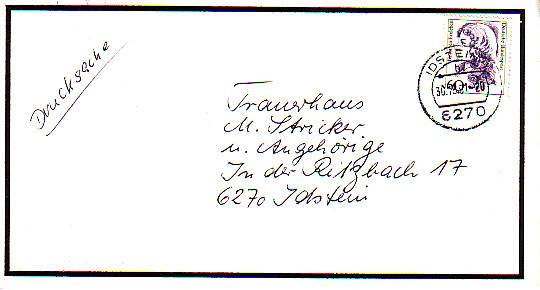 Drucksache
IDSTEIN
6270
Trauerhaus
M. Stricker
u. Angehörige
In der Ritzbach 17
6270 Idstein